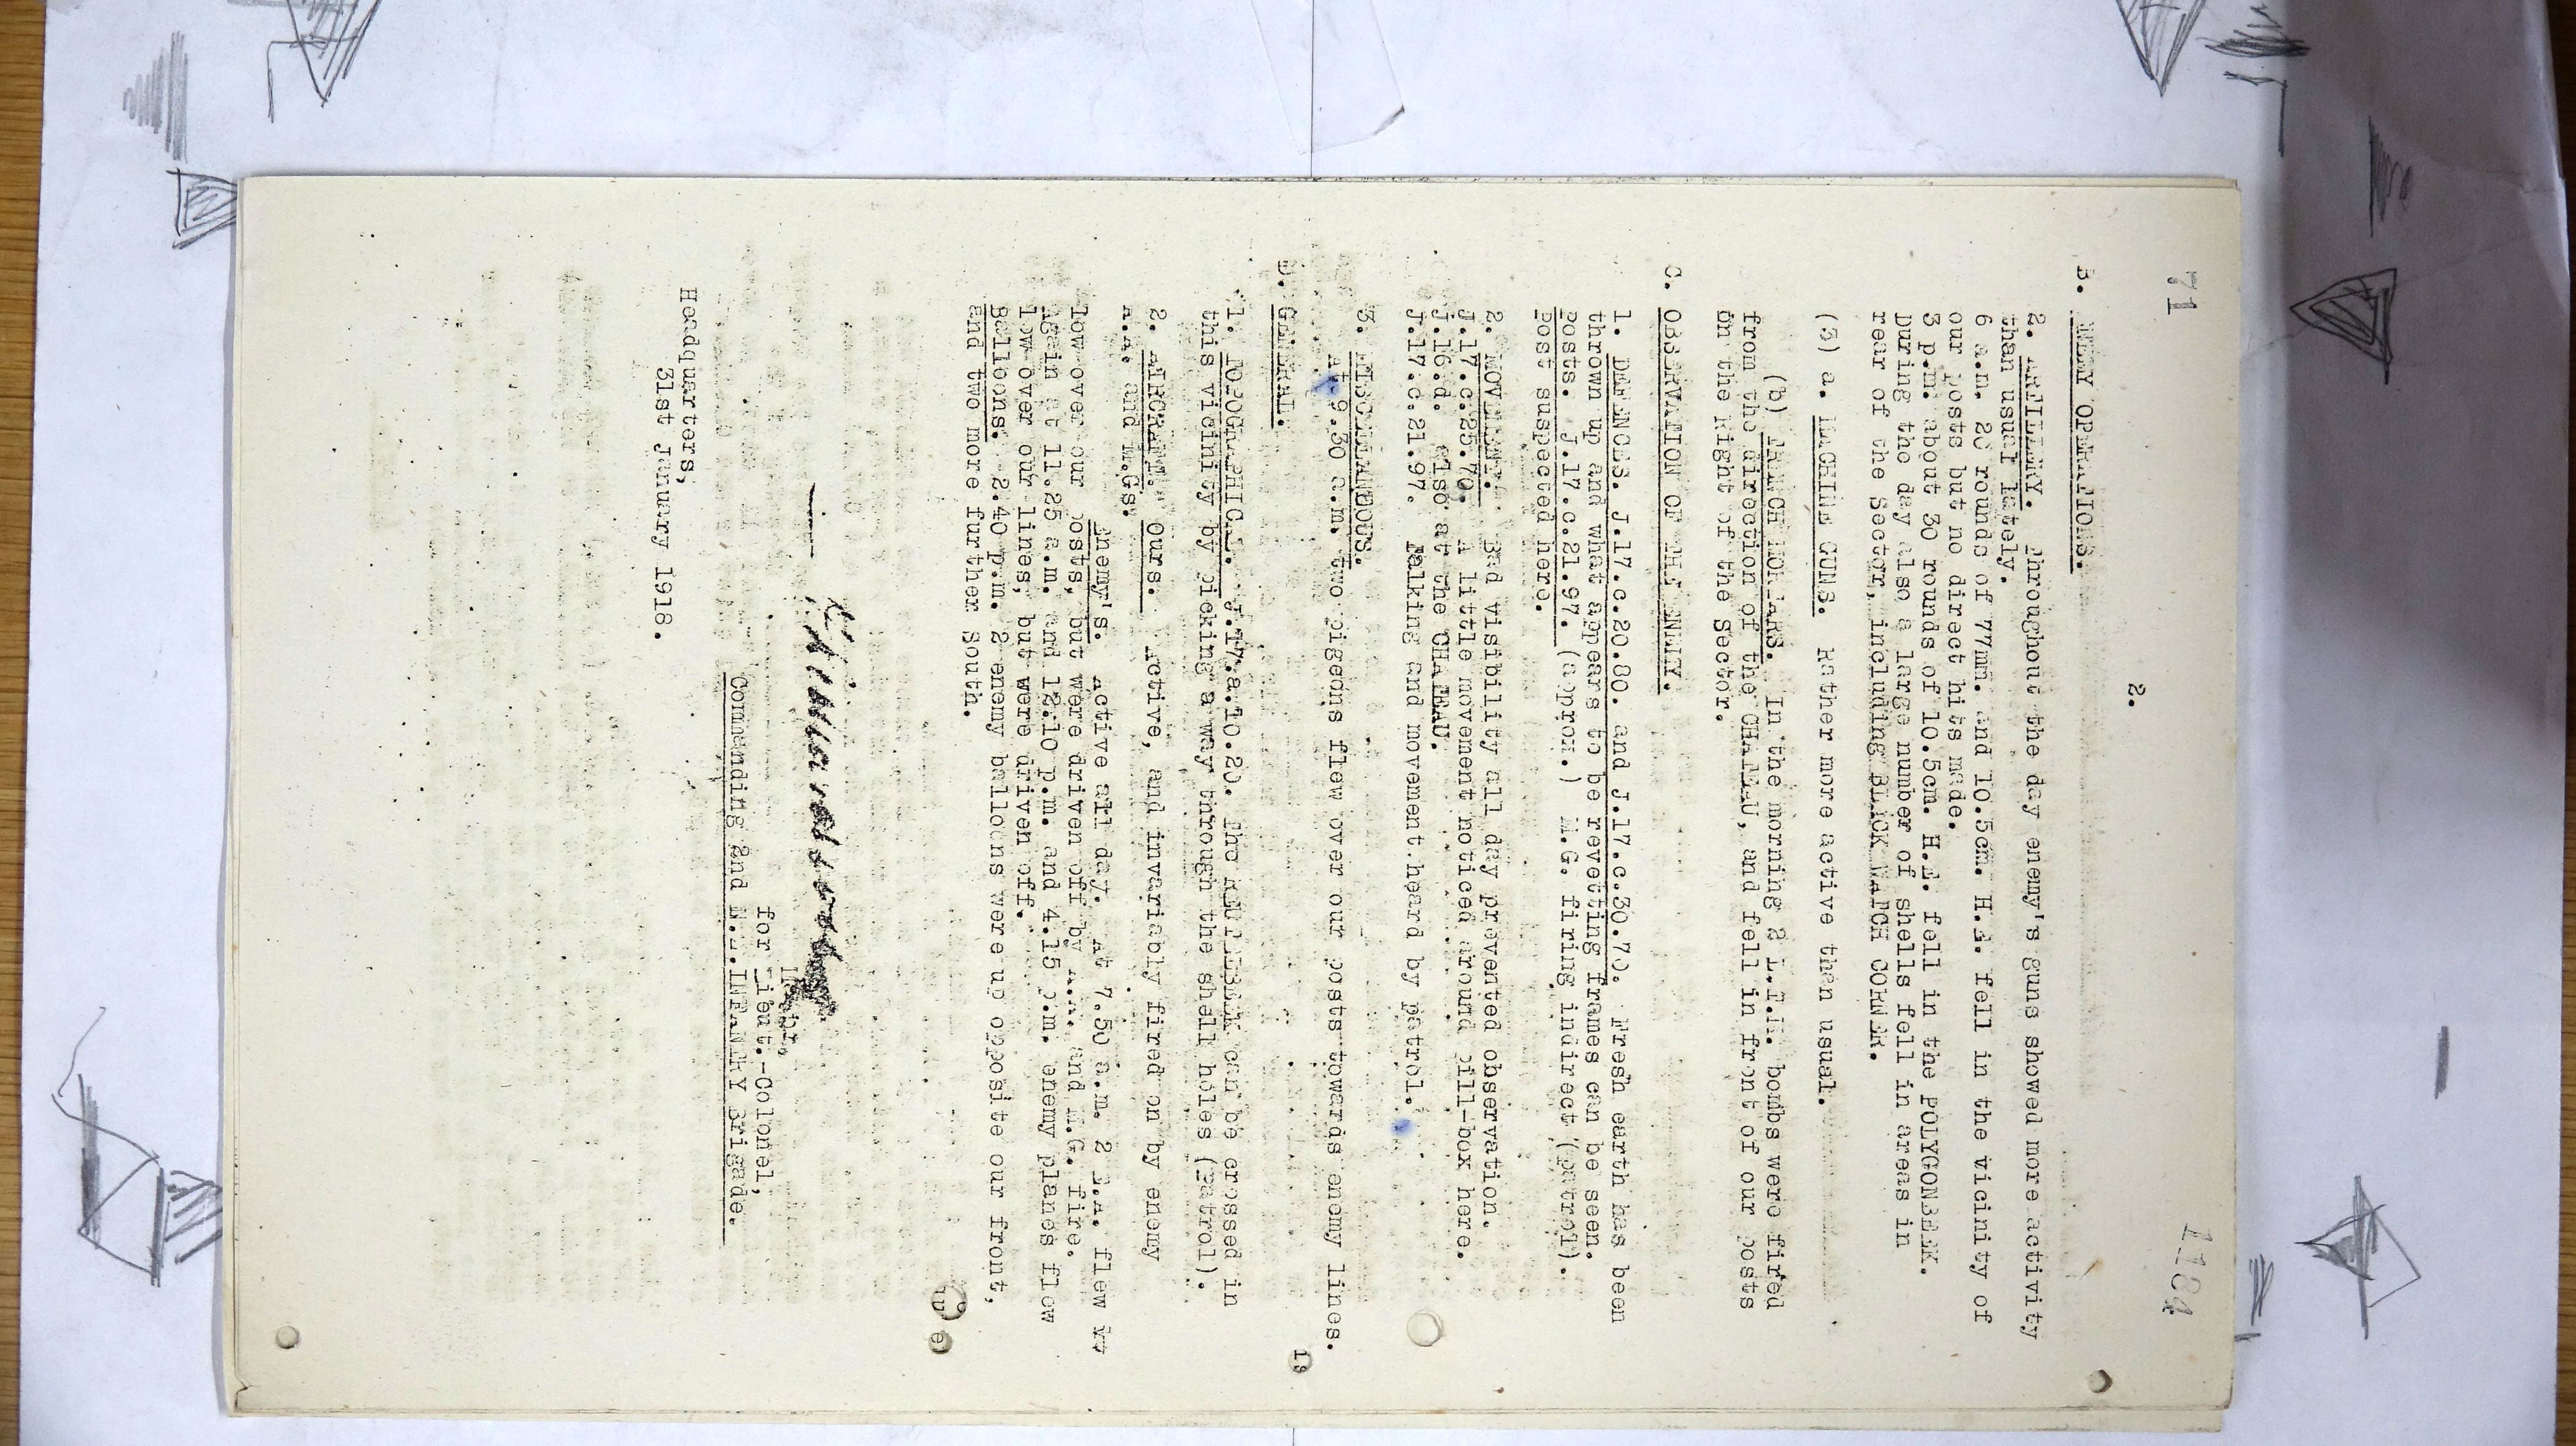 71
1184
2.
B. ENEMY OPERATIONS.
2. ARTILLERY. Throughout the day enemy's guns showed more activity
than usual lately.
6 a.m. 20 rounds of 77mm. and 10.5cm. H.E. fell in the vicinity of
our posts but no direct hits made.
3 p.m. about 30 rounds of 10.5cm. H.E. fell in the POLYGONBEEK.
During the day also a large number of shells fell in areas in
rear of the Sector, including BLACK WATCH CORNER.
(3) a. MACHINE GUNS. Rather more active than usual.
(b) TRENCH MORTARS. In the morning 2 L.T.M. bombs were fired
from the direction of the CHATEAU, and fell in front of our posts
on the Right of the Sector.
C. OBSERVATION OF THE ENEMY.
1. DEFENCES. J.17.c.20.80. and J.17.c.30.70. Fresh earth has been
thrown up and what appears to be revetting frames can be seen.
Posts. J.17.c.21.97. (approx.) M.G. firing indirect (patrol).
Post suspected here.
2. MOVEMENT. Bad visibility all day prevented observation.
J.17.c.25.70. A little movement noticed around pill-box here.
J.16.d. also at the CHATEAU.
J.17.c.21.97. Talking and movement heard by patrol.
3. MISCELLANEOUS.
At 9.30 a.m. two pigeons flew over our posts towards enemy lines.
D. GENERAL.
1. TOPOGRAPHICAL. J.17.a.10.20. The REUTELBEEK can be crossed in
this vicinity by picking a way through the shell holes (patrol).
2. AIRCRAFT. Ours. Active, and invariably fired on by enemy
A.A. and M.Gs.
Enemy's. Active all day. At 7.50 a.m. 2 E.A. flew
low over our posts, but were driven off by A.A. and M.G. fire.
Again at 11.25 a.m. and 12.10 p.m. and 4.15 p.m. enemy planes flew
low over our lines, but were driven off.
Balloons. 2.40 p.m. 2 enemy balloons were up opposite our front,
and two more further South.
Major,
for Lieut.-Colonel,
Commanding 2nd N.Z.INFANTRY Brigade.
Headquarters,
31st January 1918.